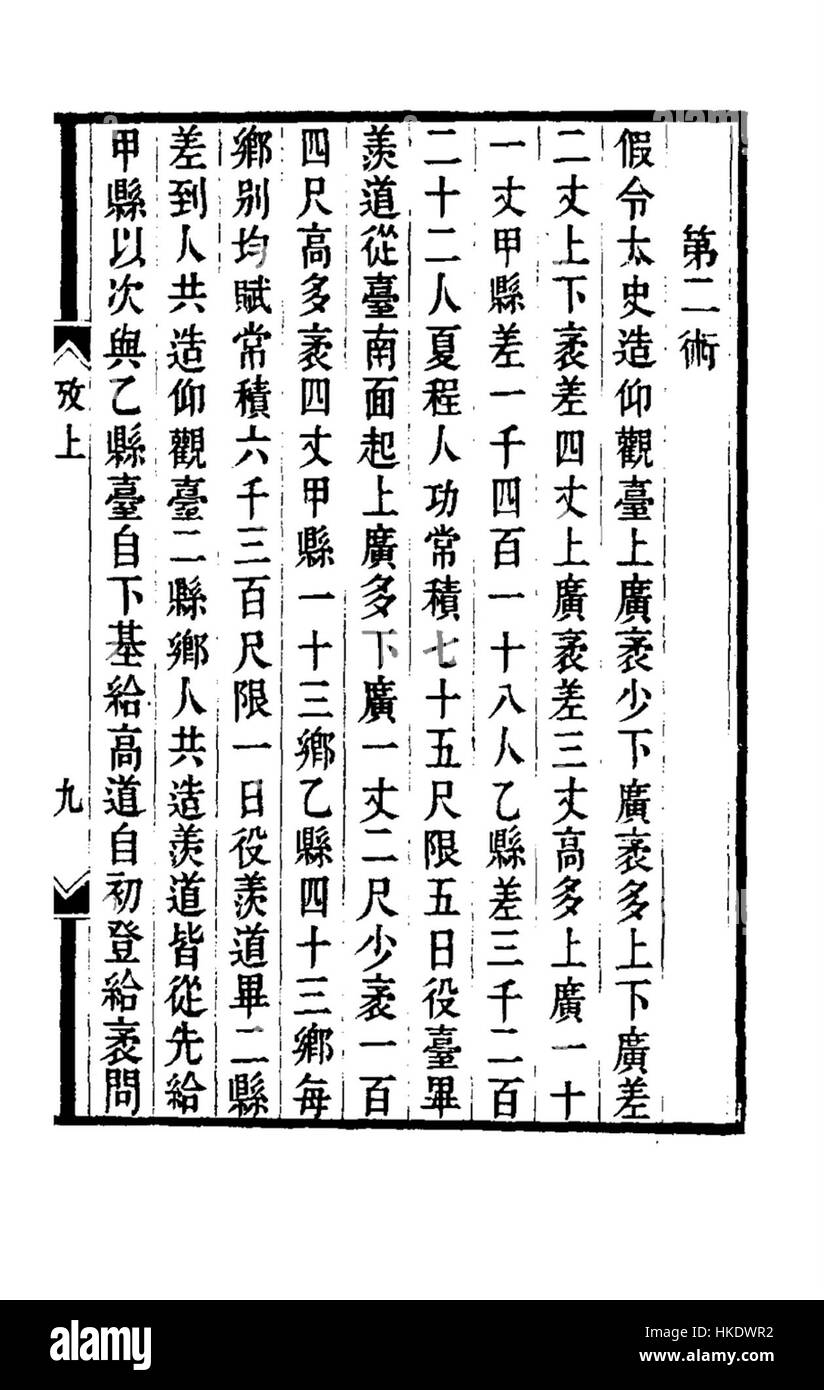 第二術
假令太史造仰觀臺上廣袤少下廣袤多上下廣差
二丈上下袤差四丈上廣袤差三丈高多上廣一十
一丈甲縣差一千四百一十八人乙縣差三千二百
二十二人夏程人功常積七十五尺限五日役臺畢
羨道從臺南面起上廣多下廣一丈二尺少袤一百
四尺高多袤四丈甲縣一十三鄉乙縣四十三鄉每
鄉別均賦常積六千三百尺限一日役羨道畢二縣
差到人共造仰觀臺二縣鄉人共造羨道皆從先給
甲縣以次與乙縣臺自下基給高道自初登給袤問
攷上
九
alamy
Image ID: HKDWR2
www.alamy.com